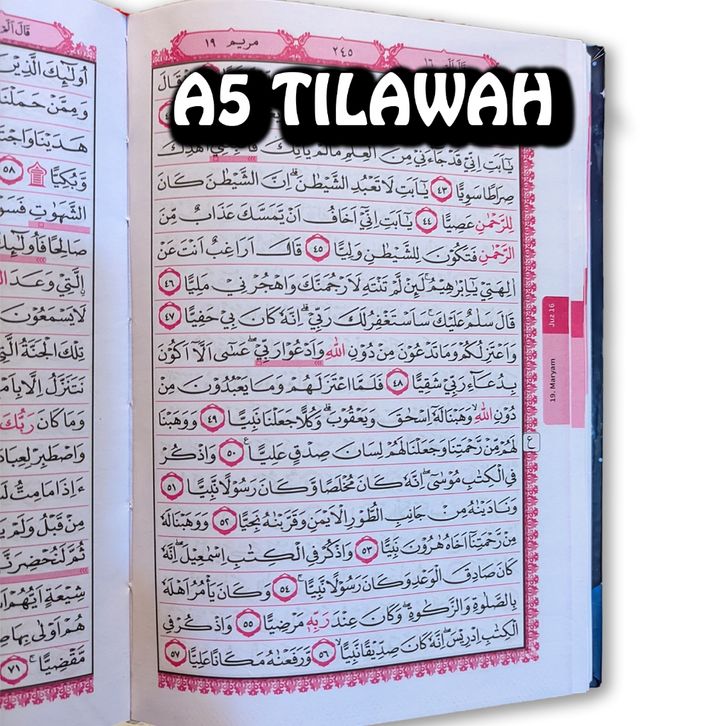 مريم ١٩
٢٤٥
A5 TILAWAH
قَالَ
يٰٓاَبَتِ اِنِّيْ قَدْ جَاۤءَنِيْ مِنَ الْعِلْمِ مَا لَمْ يَأْتِكَ فَاتَّبِعْنِيْٓ اَهْدِكَ
صِرَاطًا سَوِيًّا ٤٣ يٰٓاَبَتِ لَا تَعْبُدِ الشَّيْطٰنَۗ اِنَّ الشَّيْطٰنَ كَانَ
لِلرَّحْمٰنِ عَصِيًّا ٤٤ يٰٓاَبَتِ اِنِّيْٓ اَخَافُ اَنْ يَّمَسَّكَ عَذَابٌ مِّنَ
الرَّحْمٰنِ فَتَكُوْنَ لِلشَّيْطٰنِ وَلِيًّا ٤٥ قَالَ اَرَاغِبٌ اَنْتَ عَنْ
اٰلِهَتِيْ يٰٓاِبْرٰهِيْمُۚ لَىِٕنْ لَّمْ تَنْتَهِ لَاَرْجُمَنَّكَ وَاهْجُرْنِيْ مَلِيًّا ٤٦
قَالَ سَلٰمٌ عَلَيْكَۚ سَاَسْتَغْفِرُ لَكَ رَبِّيْۗ اِنَّهٗ كَانَ بِيْ حَفِيًّا ٤٧
وَاَعْتَزِلُكُمْ وَمَا تَدْعُوْنَ مِنْ دُوْنِ اللّٰهِ وَاَدْعُوْا رَبِّيْۖ عَسٰٓى اَلَّآ اَكُوْنَ
بِدُعَاۤءِ رَبِّيْ شَقِيًّا ٤٨ فَلَمَّا اعْتَزَلَهُمْ وَمَا يَعْبُدُوْنَ مِنْ
دُوْنِ اللّٰهِۙ وَهَبْنَا لَهٗٓ اِسْحٰقَ وَيَعْقُوْبَۗ وَكُلًّا جَعَلْنَا نَبِيًّا ٤٩ وَوَهَبْنَا
لَهُمْ مِّنْ رَّحْمَتِنَا وَجَعَلْنَا لَهُمْ لِسَانَ صِدْقٍ عَلِيًّا ࣖ ٥٠ وَاذْكُرْ
فِى الْكِتٰبِ مُوْسٰٓىۖ اِنَّهٗ كَانَ مُخْلَصًا وَّكَانَ رَسُوْلًا نَّبِيًّا ٥١
وَنَادَيْنٰهُ مِنْ جَانِبِ الطُّوْرِ الْاَيْمَنِ وَقَرَّبْنٰهُ نَجِيًّا ٥٢ وَوَهَبْنَا لَهٗ
مِنْ رَّحْمَتِنَآ اَخَاهُ هٰرُوْنَ نَبِيًّا ٥٣ وَاذْكُرْ فِى الْكِتٰبِ اِسْمٰعِيْلَۖ اِنَّهٗ
كَانَ صَادِقَ الْوَعْدِ وَكَانَ رَسُوْلًا نَّبِيًّاۚ ٥٤ وَكَانَ يَأْمُرُ اَهْلَهٗ
بِالصَّلٰوةِ وَالزَّكٰوةِۖ وَكَانَ عِنْدَ رَبِّهٖ مَرْضِيًّا ٥٥ وَاذْكُرْ فِى
الْكِتٰبِ اِدْرِيْسَۖ اِنَّهٗ كَانَ صِدِّيْقًا نَّبِيًّاۙ ٥٦ وَّرَفَعْنٰهُ مَكَانًا عَلِيًّا ٥٧
Juz 16
19. Maryam
ع
اُولٰۤىِٕكَ الَّذِيْنَ
وَمِمَّنْ حَمَلْنَا
هَدَيْنَا وَاجْتَ
وَّبُكِيًّا ۩ ٥٨
الشَّهَوٰتِ فَسَوْ
صَالِحًا فَاُولٰۤىِٕكَ
ۨالَّتِيْ وَعَدَ ال
لَا يَسْمَعُوْنَ
تِلْكَ الْجَنَّةُ الَّتِ
نَتَنَزَّلُ اِلَّا بِاَمْ
وَمَا كَانَ رَبُّكَ
وَاصْطَبِرْ لِعِبَا
ءَاِذَا مَا مِتُّ لَ
مِنْ قَبْلُ وَلَمْ يَ
ثُمَّ لَنُحْضِرَنَّ
شِيْعَةٍ اَيُّهُمْ اَ
هُمْ اَوْلٰى بِهَا صِ
مَّقْضِيًّا ٧١